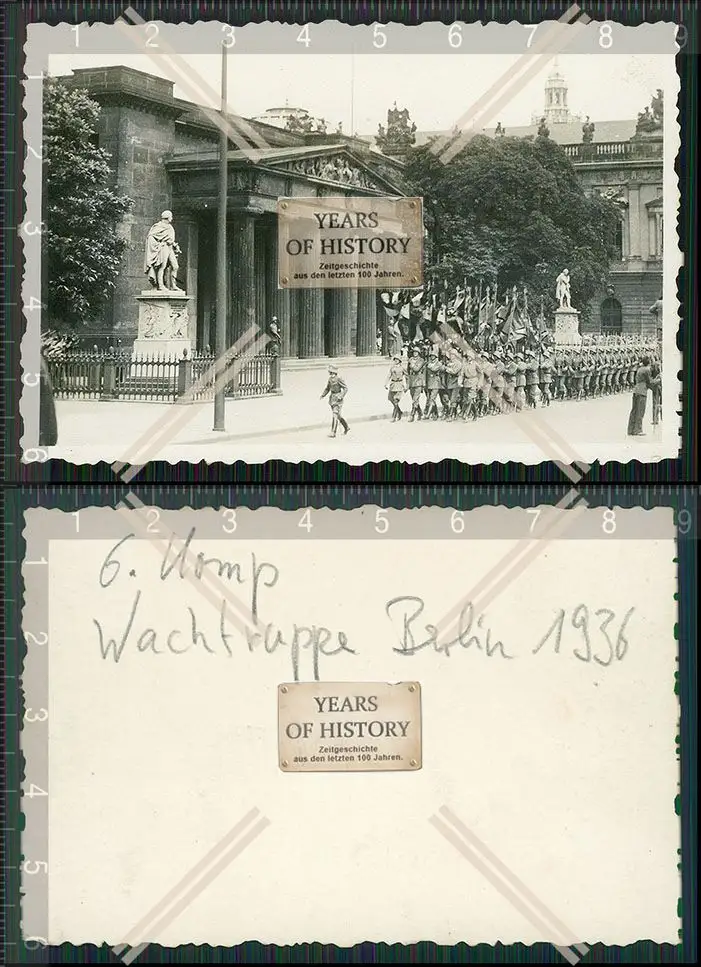 1 2 3 4 5 6 7 8 9
1
2
3
4
5
YEARS
OF HISTORY
Zeitgeschichte
aus den letzten 100 Jahren.
1 2 3 4 5 6 7 8 9
1
2
3
4
5
6
6. Komp
Wachtruppe Berlin 1936
YEARS
OF HISTORY
Zeitgeschichte
aus den letzten 100 Jahren.